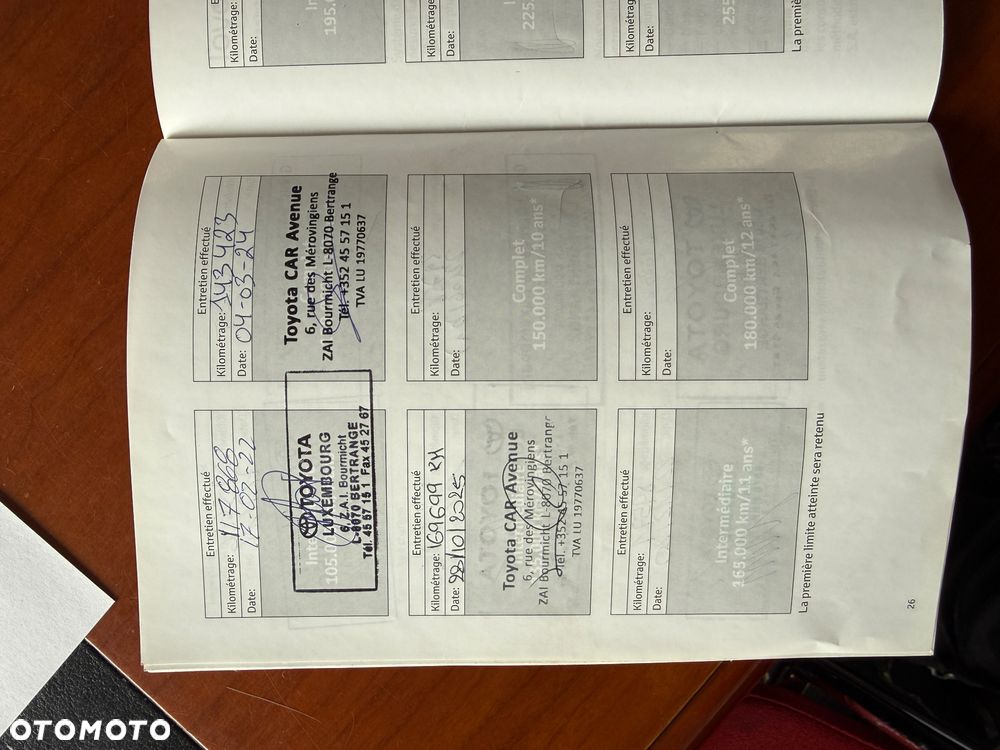 Entretien effectué
Kilométrage: 117 868
Date: 17-02-22
TOYOTA
LUXEMBOURG
6, Z.A.I. Bourmicht
L-8070 BERTRANGE
Tél. 45 57 15 1 Fax 45 27 67
105.000
Entretien effectué
Kilométrage: 143 423
Date: 04-03-24
Toyota CAR Avenue
6, rue des Mérovingiens
ZAI Bourmicht L-8070 Bertrange
Tél. +352 45 57 15 1
TVA LU 19770637
Entretien effectué
Kilométrage: 169699 KM
Date: /10/2025
Toyota CAR Avenue
6, rue des Mérovingiens
ZAI Bourmicht L-8070 Bertrange
Tél. +352 45 57 15 1
TVA LU 19770637
Entretien effectué
Kilométrage:
Date:
Complet
150.000 km/10 ans*
Entretien effectué
Kilométrage:
Date:
Intermédiaire
165.000 km/11 ans*
Entretien effectué
Kilométrage:
Date:
Complet
180.000 km/12 ans*
La première limite atteinte sera retenu
26
Kilométrage:
Date:
195.0
Kilométrage:
Date:
225
Kilométrage:
Date:
255
La première
OTOMOTO